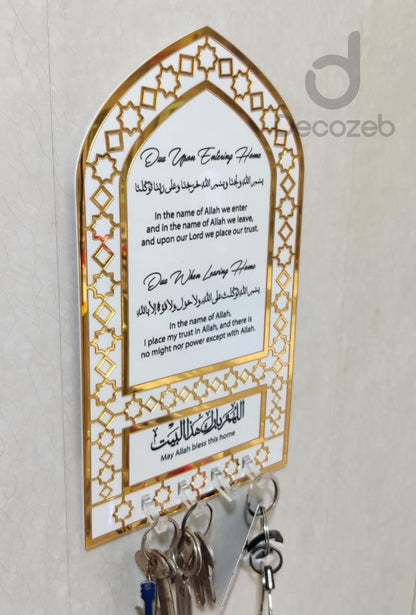 decozeb
Dua Upon Entering Home
بسم الله ولجنا وبسم الله خرجنا وعلى ربنا توكلنا
In the name of Allah we enter
and in the name of Allah we leave,
and upon our Lord we place our trust.
Dua When Leaving Home
بسم الله توكلت على الله ولا حول ولا قوة إلا بالله
In the name of Allah,
I place my trust in Allah, and there is
no might nor power except with Allah.
اللهم بارك هذا البيت
May Allah bless this home